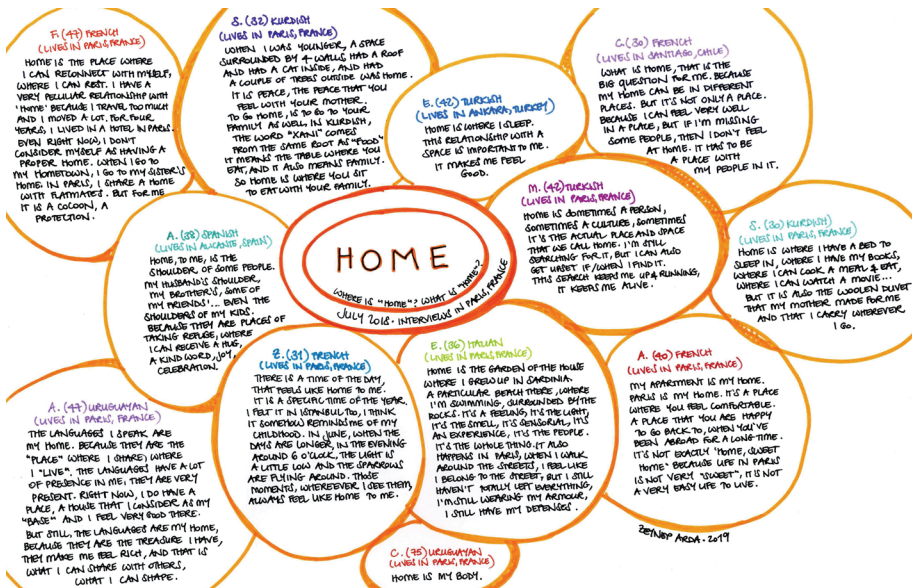 F. (47) FRENCH
(LIVES IN PARIS, FRANCE)
HOME IS THE PLACE WHERE
I CAN RECONNECT WITH MYSELF,
WHERE I CAN REST. I HAVE A
VERY PECULIAR RELATIONSHIP WITH
'HOME' BECAUSE I TRAVEL TOO MUCH
AND I MOVED A LOT. FOR FOUR
YEARS, I LIVED IN A HOTEL IN PARIS.
EVEN RIGHT NOW, I DON'T
CONSIDER MYSELF AS HAVING A
PROPER HOME. WHEN I GO TO
MY HOMETOWN, I GO TO MY SISTER'S
HOME. IN PARIS, I SHARE A HOME
WITH FLATMATES. BUT FOR ME
IT IS A COCOON, A
PROTECTION.
S. (32) KURDISH
(LIVES IN PARIS, FRANCE)
WHEN I WAS YOUNGER, A SPACE
SURROUNDED BY 4 WALLS, HAD A ROOF
AND HAD A CAT INSIDE, AND HAD
A COUPLE OF TREES OUTSIDE WAS HOME.
IT IS PEACE, THE PEACE THAT YOU
FEEL WITH YOUR MOTHER.
TO GO HOME, IS TO GO TO YOUR
FAMILY AS WELL. IN KURDISH,
THE WORD "XANI" COMES
FROM THE SAME ROOT AS "FOOD"
IT MEANS THE TABLE WHERE YOU
EAT, AND IT ALSO MEANS FAMILY.
SO HOME IS WHERE YOU SIT
TO EAT WITH YOUR FAMILY.
E. (42) TURKISH
(LIVES IN ANKARA, TURKEY)
HOME IS WHERE I SLEEP.
THIS RELATIONSHIP WITH A
SPACE IS IMPORTANT TO ME.
IT MAKES ME FEEL
GOOD.
C. (30) FRENCH
(LIVES IN SANTIAGO, CHILE)
WHAT IS HOME, THAT IS THE
BIG QUESTION FOR ME. BECAUSE
MY HOME CAN BE IN DIFFERENT
PLACES. BUT IT'S NOT ONLY A PLACE.
BECAUSE I CAN FEEL VERY WELL
IN A PLACE, BUT IF I'M MISSING
SOME PEOPLE, THEN I DON'T FEEL
AT HOME. IT HAS TO BE
A PLACE WITH
MY PEOPLE IN IT.
A. (38) SPANISH
(LIVES IN ALICANTE, SPAIN)
HOME, TO ME, IS THE
SHOULDER OF SOME PEOPLE.
MY HUSBAND'S SHOULDER,
MY BROTHER'S, SOME OF
MY FRIENDS'... EVEN THE
SHOULDERS OF MY KIDS.
BECAUSE THEY ARE PLACES OF
TAKING REFUGE, WHERE
I CAN RECEIVE A HUG,
A KIND WORD, JOY,
CELEBRATION.
HOME
WHERE IS "HOME"? WHAT IS "HOME"?
JULY 2018 - INTERVIEWS IN PARIS, FRANCE
M. (42) TURKISH
(LIVES IN PARIS, FRANCE)
HOME IS SOMETIMES A PERSON,
SOMETIMES A CULTURE, SOMETIMES
IT'S THE ACTUAL PLACE AND SPACE
THAT WE CALL HOME. I'M STILL
SEARCHING FOR IT, BUT I CAN ALSO
GET UPSET IF/WHEN I FIND IT.
THIS SEARCH KEEPS ME UP & RUNNING,
IT KEEPS ME ALIVE.
S. (30) KURDISH
(LIVES IN PARIS, FRANCE)
HOME IS WHERE I HAVE A BED TO
SLEEP IN, WHERE I HAVE MY BOOKS,
WHERE I CAN COOK A MEAL & EAT,
WHERE I CAN WATCH A MOVIE...
BUT IT IS ALSO THE WOOLEN DUVET
THAT MY MOTHER MADE FOR ME
AND THAT I CARRY WHEREVER
I GO.
A. (47) URUGUAYAN
(LIVES IN PARIS, FRANCE)
THE LANGUAGES I SPEAK ARE
MY HOME. BECAUSE THEY ARE THE
"PLACE" WHERE I SHARE, WHERE
I "LIVE". THE LANGUAGES HAVE A LOT
OF PRESENCE IN ME, THEY ARE VERY
PRESENT. RIGHT NOW, I DO HAVE A
PLACE, A HOUSE THAT I CONSIDER AS MY
"BASE" AND I FEEL VERY GOOD THERE.
BUT STILL, THE LANGUAGES ARE MY HOME,
BECAUSE THEY ARE THE TREASURE I HAVE,
THEY MAKE ME FEEL RICH, AND THAT IS
WHAT I CAN SHARE WITH OTHERS,
WHAT I CAN SHAPE.
Z. (31) FRENCH
(LIVES IN PARIS, FRANCE)
THERE IS A TIME OF THE DAY,
THAT FEELS LIKE HOME TO ME.
IT IS A SPECIFIC TIME OF THE YEAR.
I FELT IT IN ISTANBUL TOO, I THINK
IT SOMEHOW REMINDS ME OF MY
CHILDHOOD. IN JUNE, WHEN THE
DAYS ARE LONGER, IN THE EVENING
AROUND 6 O'CLOCK, THE LIGHT IS
A LITTLE LOW AND THE SPARROWS
ARE FLYING AROUND. THOSE
MOMENTS, WHEREVER I SEE THEM,
ALWAYS FEEL LIKE HOME TO ME.
E. (36) ITALIAN
(LIVES IN PARIS, FRANCE)
HOME IS THE GARDEN OF THE HOUSE
WHERE I GREW UP IN SARDINIA.
A PARTICULAR BEACH THERE, WHERE
I'M SWIMMING, SURROUNDED BY THE
ROCKS. IT'S A FEELING, IT'S THE LIGHT,
IT'S THE SMELL, IT'S SENSORIAL, IT'S
AN EXPERIENCE, IT'S THE PEOPLE.
IT'S THE WHOLE THING. IT ALSO
HAPPENS IN PARIS, WHEN I WALK
AROUND THE STREETS, I FEEL LIKE
I BELONG TO THE STREET, BUT I STILL
HAVEN'T TOTALLY LEFT EVERYTHING,
I'M STILL WEARING MY ARMOUR,
I STILL HAVE MY DEFENSES.
A. (40) FRENCH
(LIVES IN PARIS, FRANCE)
MY APARTMENT IS MY HOME.
PARIS IS MY HOME. IT'S A PLACE
WHERE YOU FEEL COMFORTABLE.
A PLACE THAT YOU ARE HAPPY
TO GO BACK TO, WHEN YOU'VE
BEEN ABROAD FOR A LONG TIME.
IT'S NOT EXACTLY 'HOME, SWEET
HOME' BECAUSE LIFE IN PARIS
IS NOT VERY "SWEET", IT IS NOT
A VERY EASY LIFE TO LIVE.
C. (75) URUGUAYAN
(LIVES IN PARIS, FRANCE)
HOME IS MY BODY.
ZEYNEP ARDA - 2019